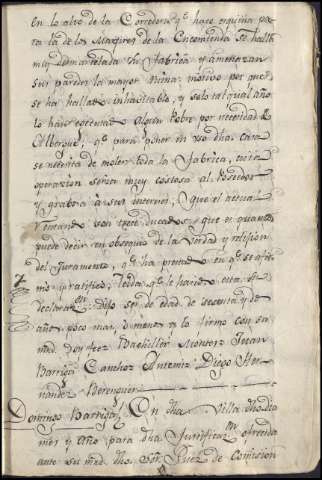 en lo alto de la Corredera qe. hace esquina pa
ra la de los Martires de la Encomienda Se halla
muy desmantelada su fabrica y amenazan
sus paredes la mayor ruina: motivo por que
se ha hallado inhavitable, y solo tal qual año
lo han ocupado algun Pobre por necesidad de
Albergue, qe. para poner en uso dha. casa
se necesita de moler toda la fabrica, cuia
operazion sería muy costosa al Poseedor
y grabosa a sus intereses, que el actual
son trece ducados: que es quanto
puede decir en obsequio de la verdad y religion
del Juramento qe. ha prestado en qe. se afir
mó y ratificó, leida qe. le ha sido esta su
declarazon. Dijo ser de edad de sesenta y dos
años poco mas o menos y lo firmo con su
mrd. doy fee Bachiller Montero Juan
Barriga Sanchez Antemi: Diego Her
nandez Berenguer
Domingo Barriga, En dha. Villa dho. dia
mes y año para dha Justificazon ofrecida
ante su mrd. dho. Sor. Juez de Comision